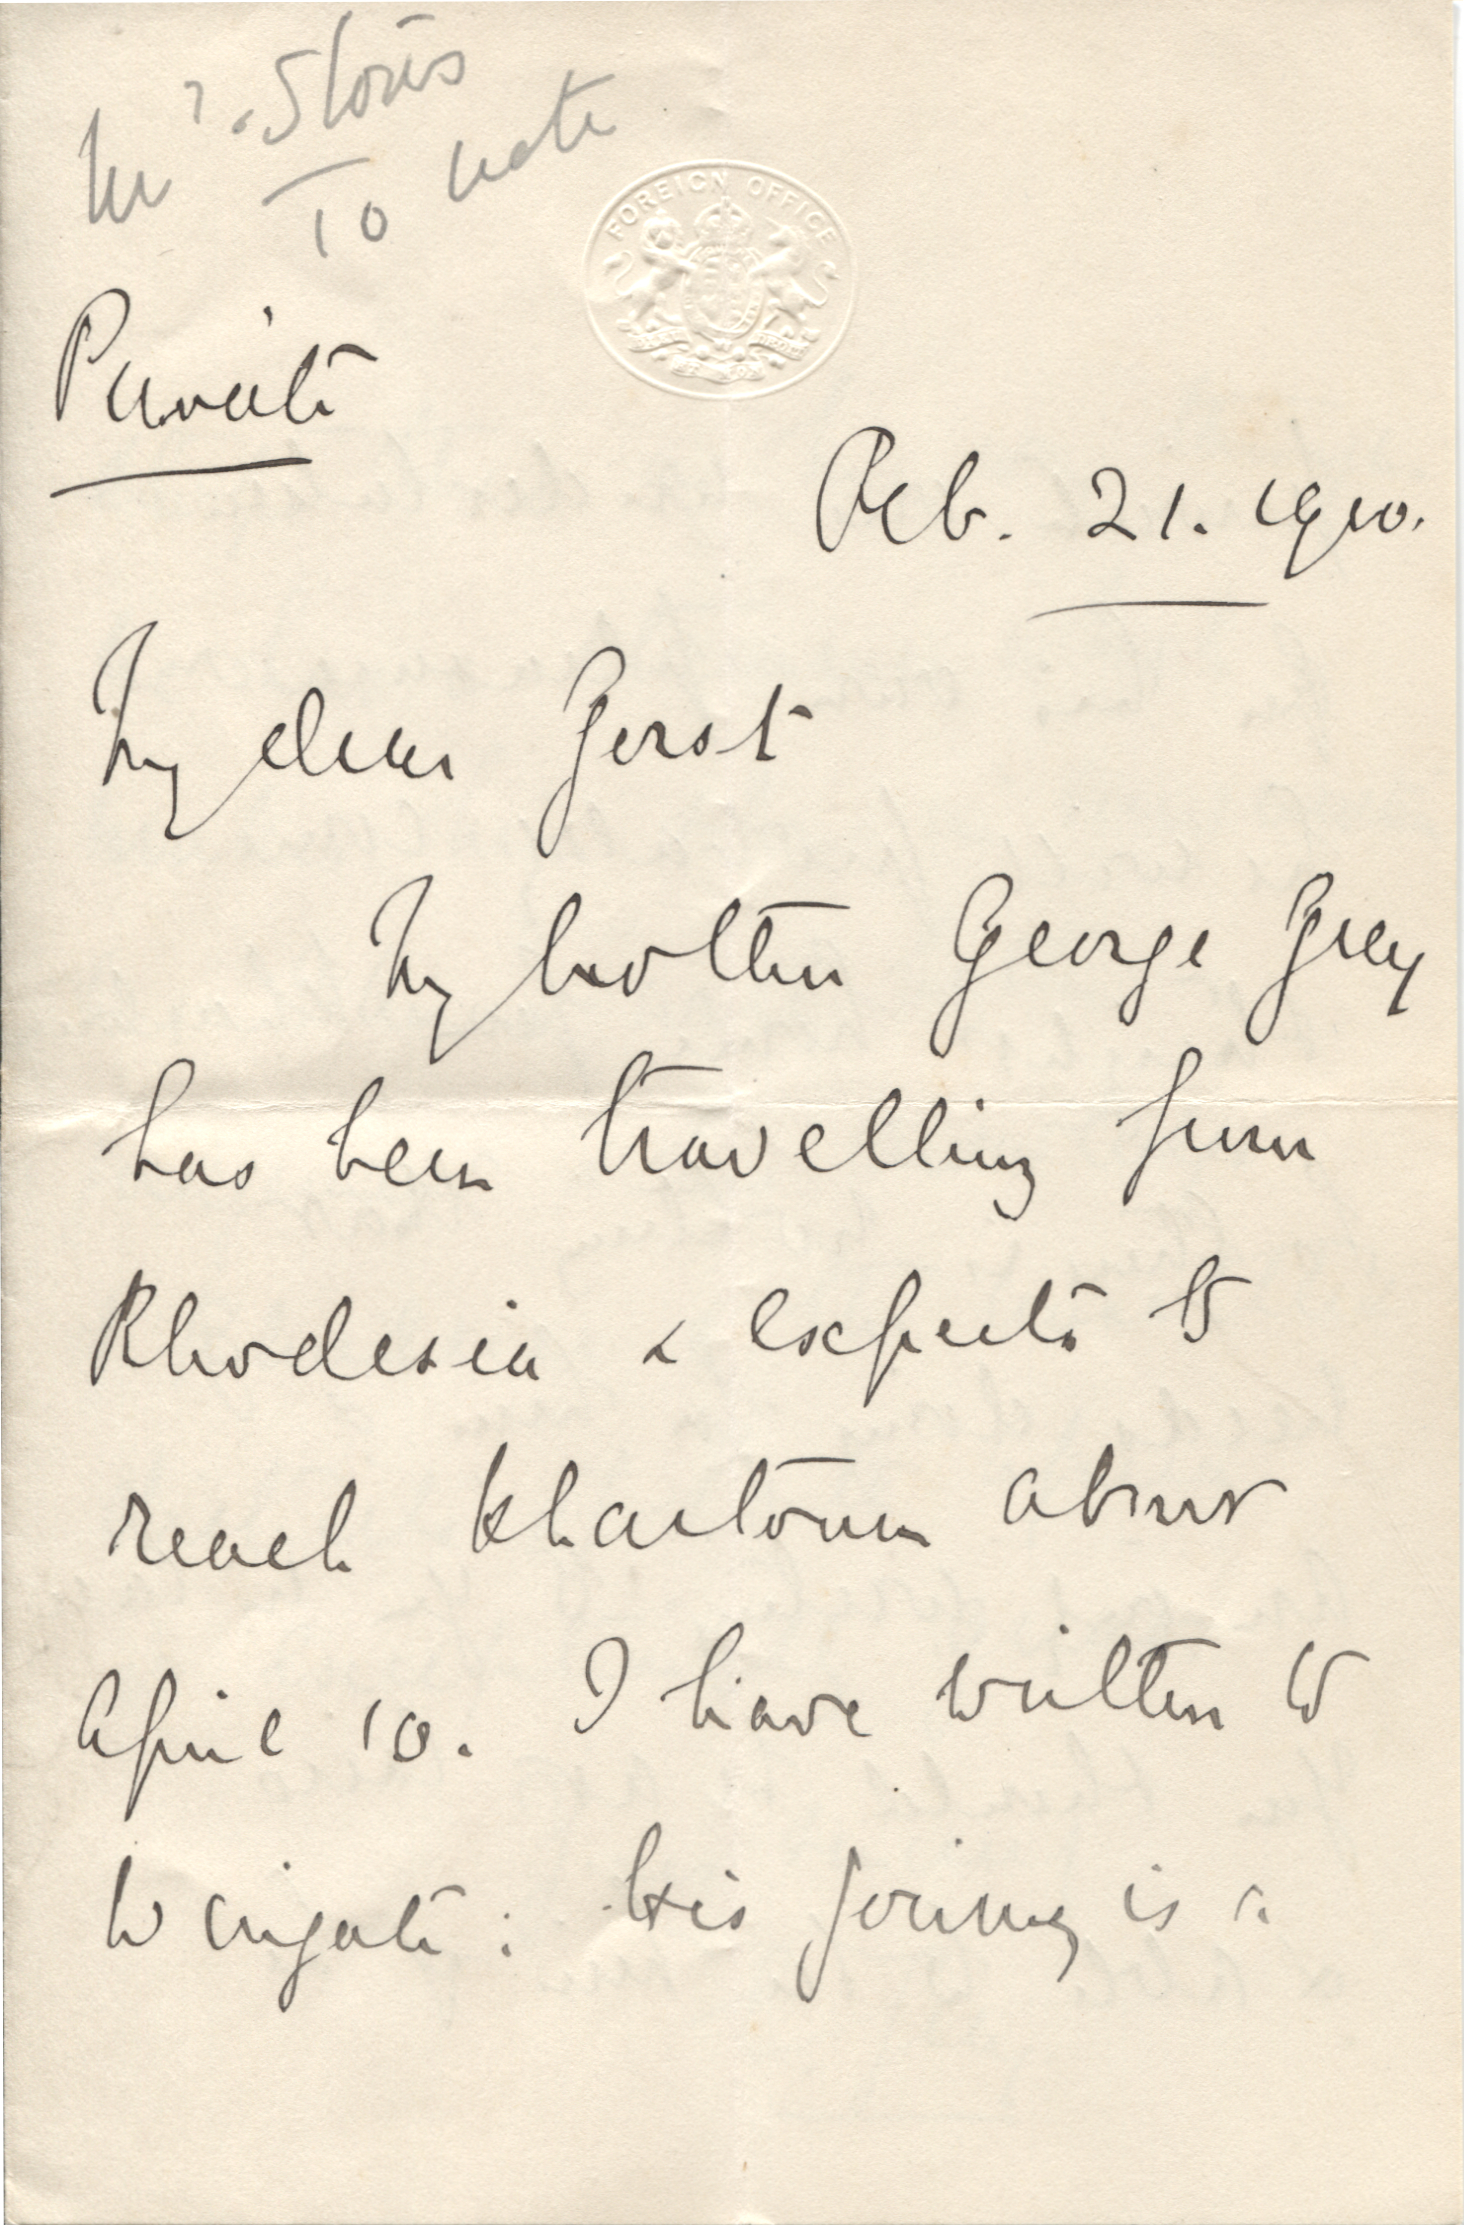 Mr. Storrs
To note
FOREIGN OFFICE
Private
Feb. 21. 1910.
My dear Gorst
My brother George Grey
has been travelling from
Rhodesia & expects to
reach Khartoum about
April 10. I have written to
Wingate: his journey is a